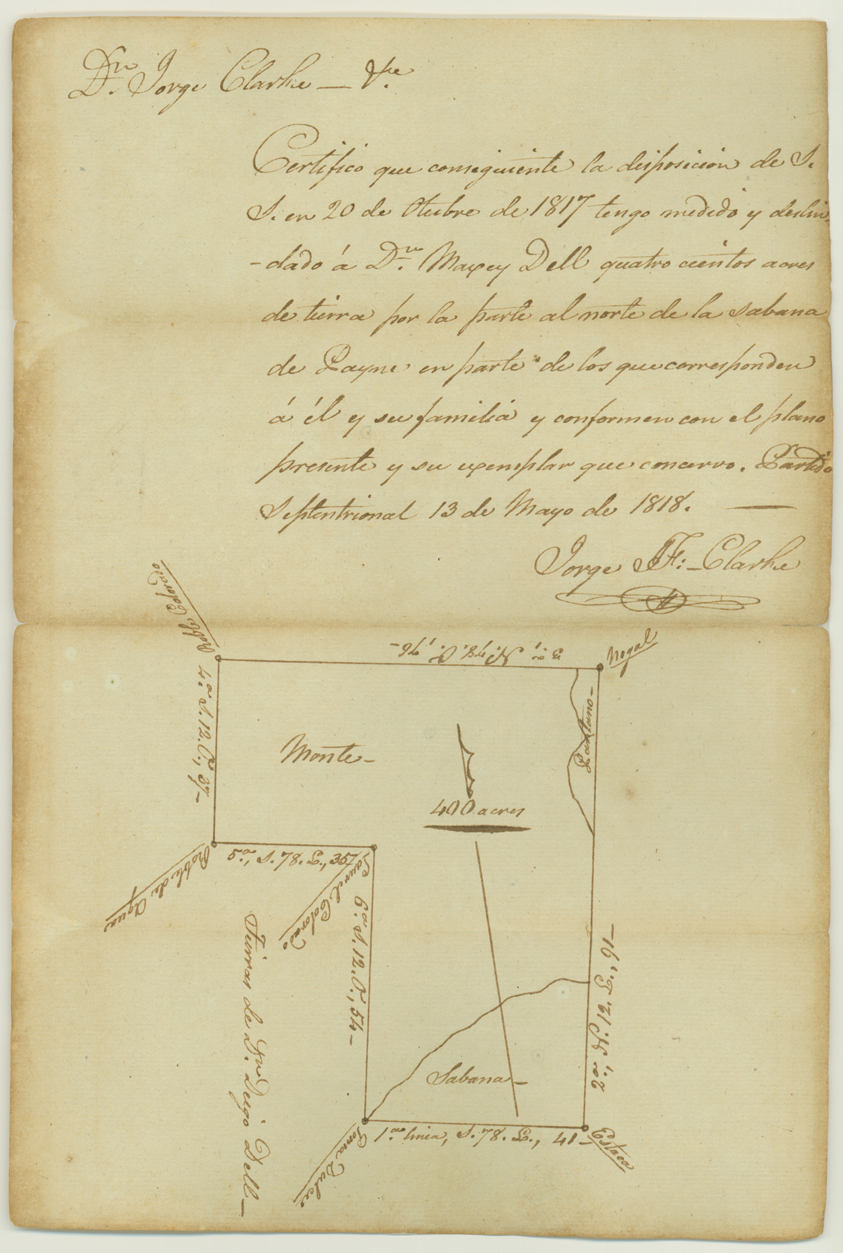 Dn. Jorge Clarke — &e.
Certifico que consiguiente la disposicion de S.
S. en 20 de Otubre de 1817 tengo medido y deslin
-dado á Dn. Maxey Dell quatro cientos acres
de tierra por la parte al norte de la sabana
de Payne en parte de los que corresponden
á él y su familia y conforme con el plano
presente y su exemplar que concervo. Partido
Septentrional 13 de Mayo de 1818. —
Jorge J. F: Clarke
Colorado
Nogal
3a., N. 78. O., 76-
4a. S. 12. O., 37-
Pantano-
Monte-
400 acres
5a., S. 78. E., 35
Roble de Agua
Laurel Colorado
6a. S. 12. O., 54-
2a., N. 12. E., 91-
Tierras de Dn. Diego Dell-
Sabana-
1a. linea, S. 78. E., 41-
Estaca
Goma Dulce